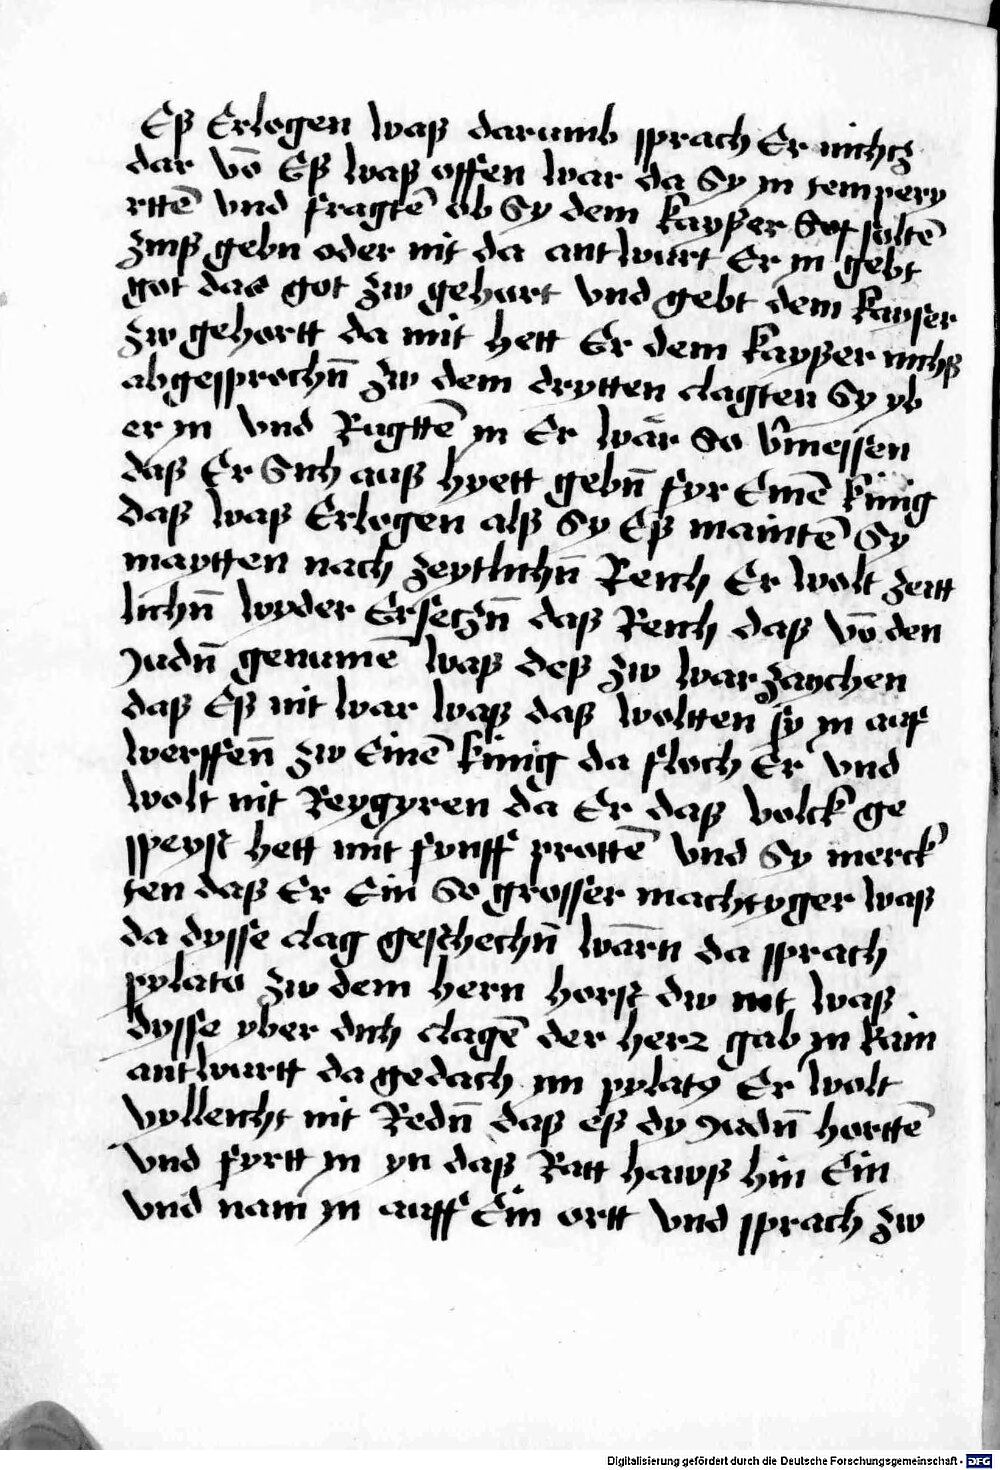 Eß Erlogen waß darumb sprach Er nichtz
dar vō Eß waß offen war da Sy in tempery
rttē vnd fragtē ob Sy dem kayßer Sot soltē
zinß gebn oder nit da antwurt Er in gebt
got das got zw gehort vnd gebt dem kayser
zw gehortt da mit hett Er dem kayßer nichß
abgesprochn̄ zw dem drytten clagten Sy yb
er in vnd Ragttē in Er wär So v̄messen
daß Er Sich auß hyett gebn̄ fyr Einē king
daß waß Erlogen alß Sy Eß maintē Sy
maytten nach zeytlichn̄ Reich Er wolt zeitt
lichn̄ wyder Ersetzn̄ daß Reich daß vō den
Judn̄ genumē waß deß zw warzaychen
daß Eß nit war waß daß woltten sy in auf
werffen̄ zw Einē king da floch Er vnd
wolt nit Reygyren da Er daß volck ge
speyst hett mit fynff prottē vnd Sy merck
ten daß Er Ein So grosser machtyger waß
da dysse clag geschechn̄ wärn da sprach
pylatus zw dem hern horst dw nit waß
dysse yber dich clagē der herz gab in kain
antwurtt da gedach im pylaty Er wolt
vylleicht nit Redn̄ daß eß dy Judn̄ horttē
vnd fyrtt in yn daß Ratt hawß hin Ein
vnd nam in auff Ein ortt vnd sprach zw
Digitalisierung gefördert durch die Deutsche Forschungsgemeinschaft - DFG